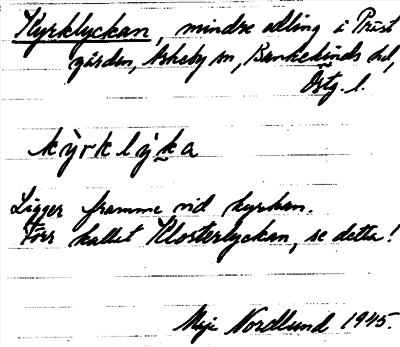 Kyrklyckan, mindre odling i Präst
gården, Askeby sn, Bankekinds hd,
Östg. l.
kỳrklỳka
Ligger framme vid kyrkan.
Förr kallat Klosterlyckan, se detta!
Nordlund 1945.